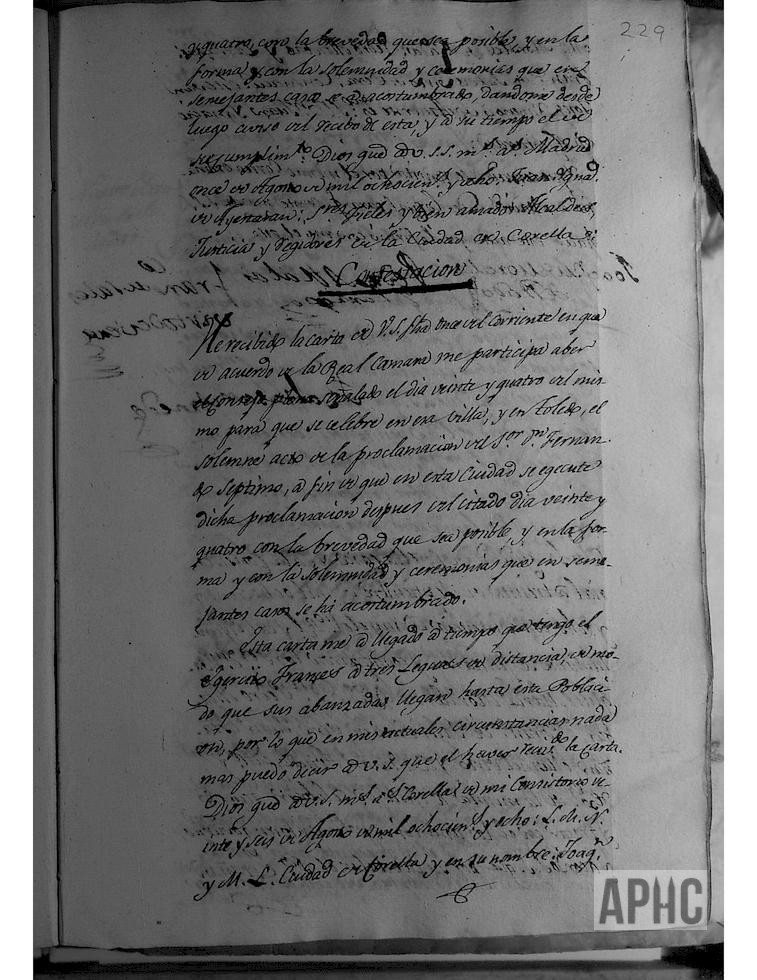 229
y quatro, con la brevedad que sea posible y en la
forma y con la solemnidad y ceremonias que en
semejantes casos se a acostumbrado, dandome desde
luego aviso del recibo de esta, y a su tiempo el de
su cumplimto. Dios gue a V. S. S. ms. as. Madrid
once de Agosto de mil ochocients. y ocho:
de Ayestaran: Sres. Fieles y bien amados Alcaldes,
Justicia y Regidores de la Ciudad de Corella
Contestacion
He recibido la carta de V.S. fha once del Corriente en que
de acuerdo de la Real Camara me participa aber
el Consejo pleno señalado el dia veinte y quatro del mis-
mo para que se celebre en esa Villa, y en Toledo, el
solemne acto de la proclamacion del Sor. Dn. Fernan-
do Septimo, a fin de que en esta Ciudad se egecute
dicha proclamacion despues del citado dia veinte y
quatro con la brevedad que sea posible, y en la for-
ma y con la solemnidad y ceremonias que en seme-
jantes casos se ha acostumbrado.
Esta carta me a llegado a tiempo que tengo el
Egercito Frances a tres Leguas de distancia, de mo-
do que sus abanzadas llegan hasta esta Poblaci-
on, por lo que en mis actuales circunstancias nada
mas puedo decir a V. S. que el haver recivdo. la carta.
Dios gue a V. S. ms. as. Corella de mi Consistorio ve-
inte y seis de Agosto de mil ochocients. y ocho: L. M. N.
y M. L. Ciudad de Corella y en su nombre: Joaqn.
APHC